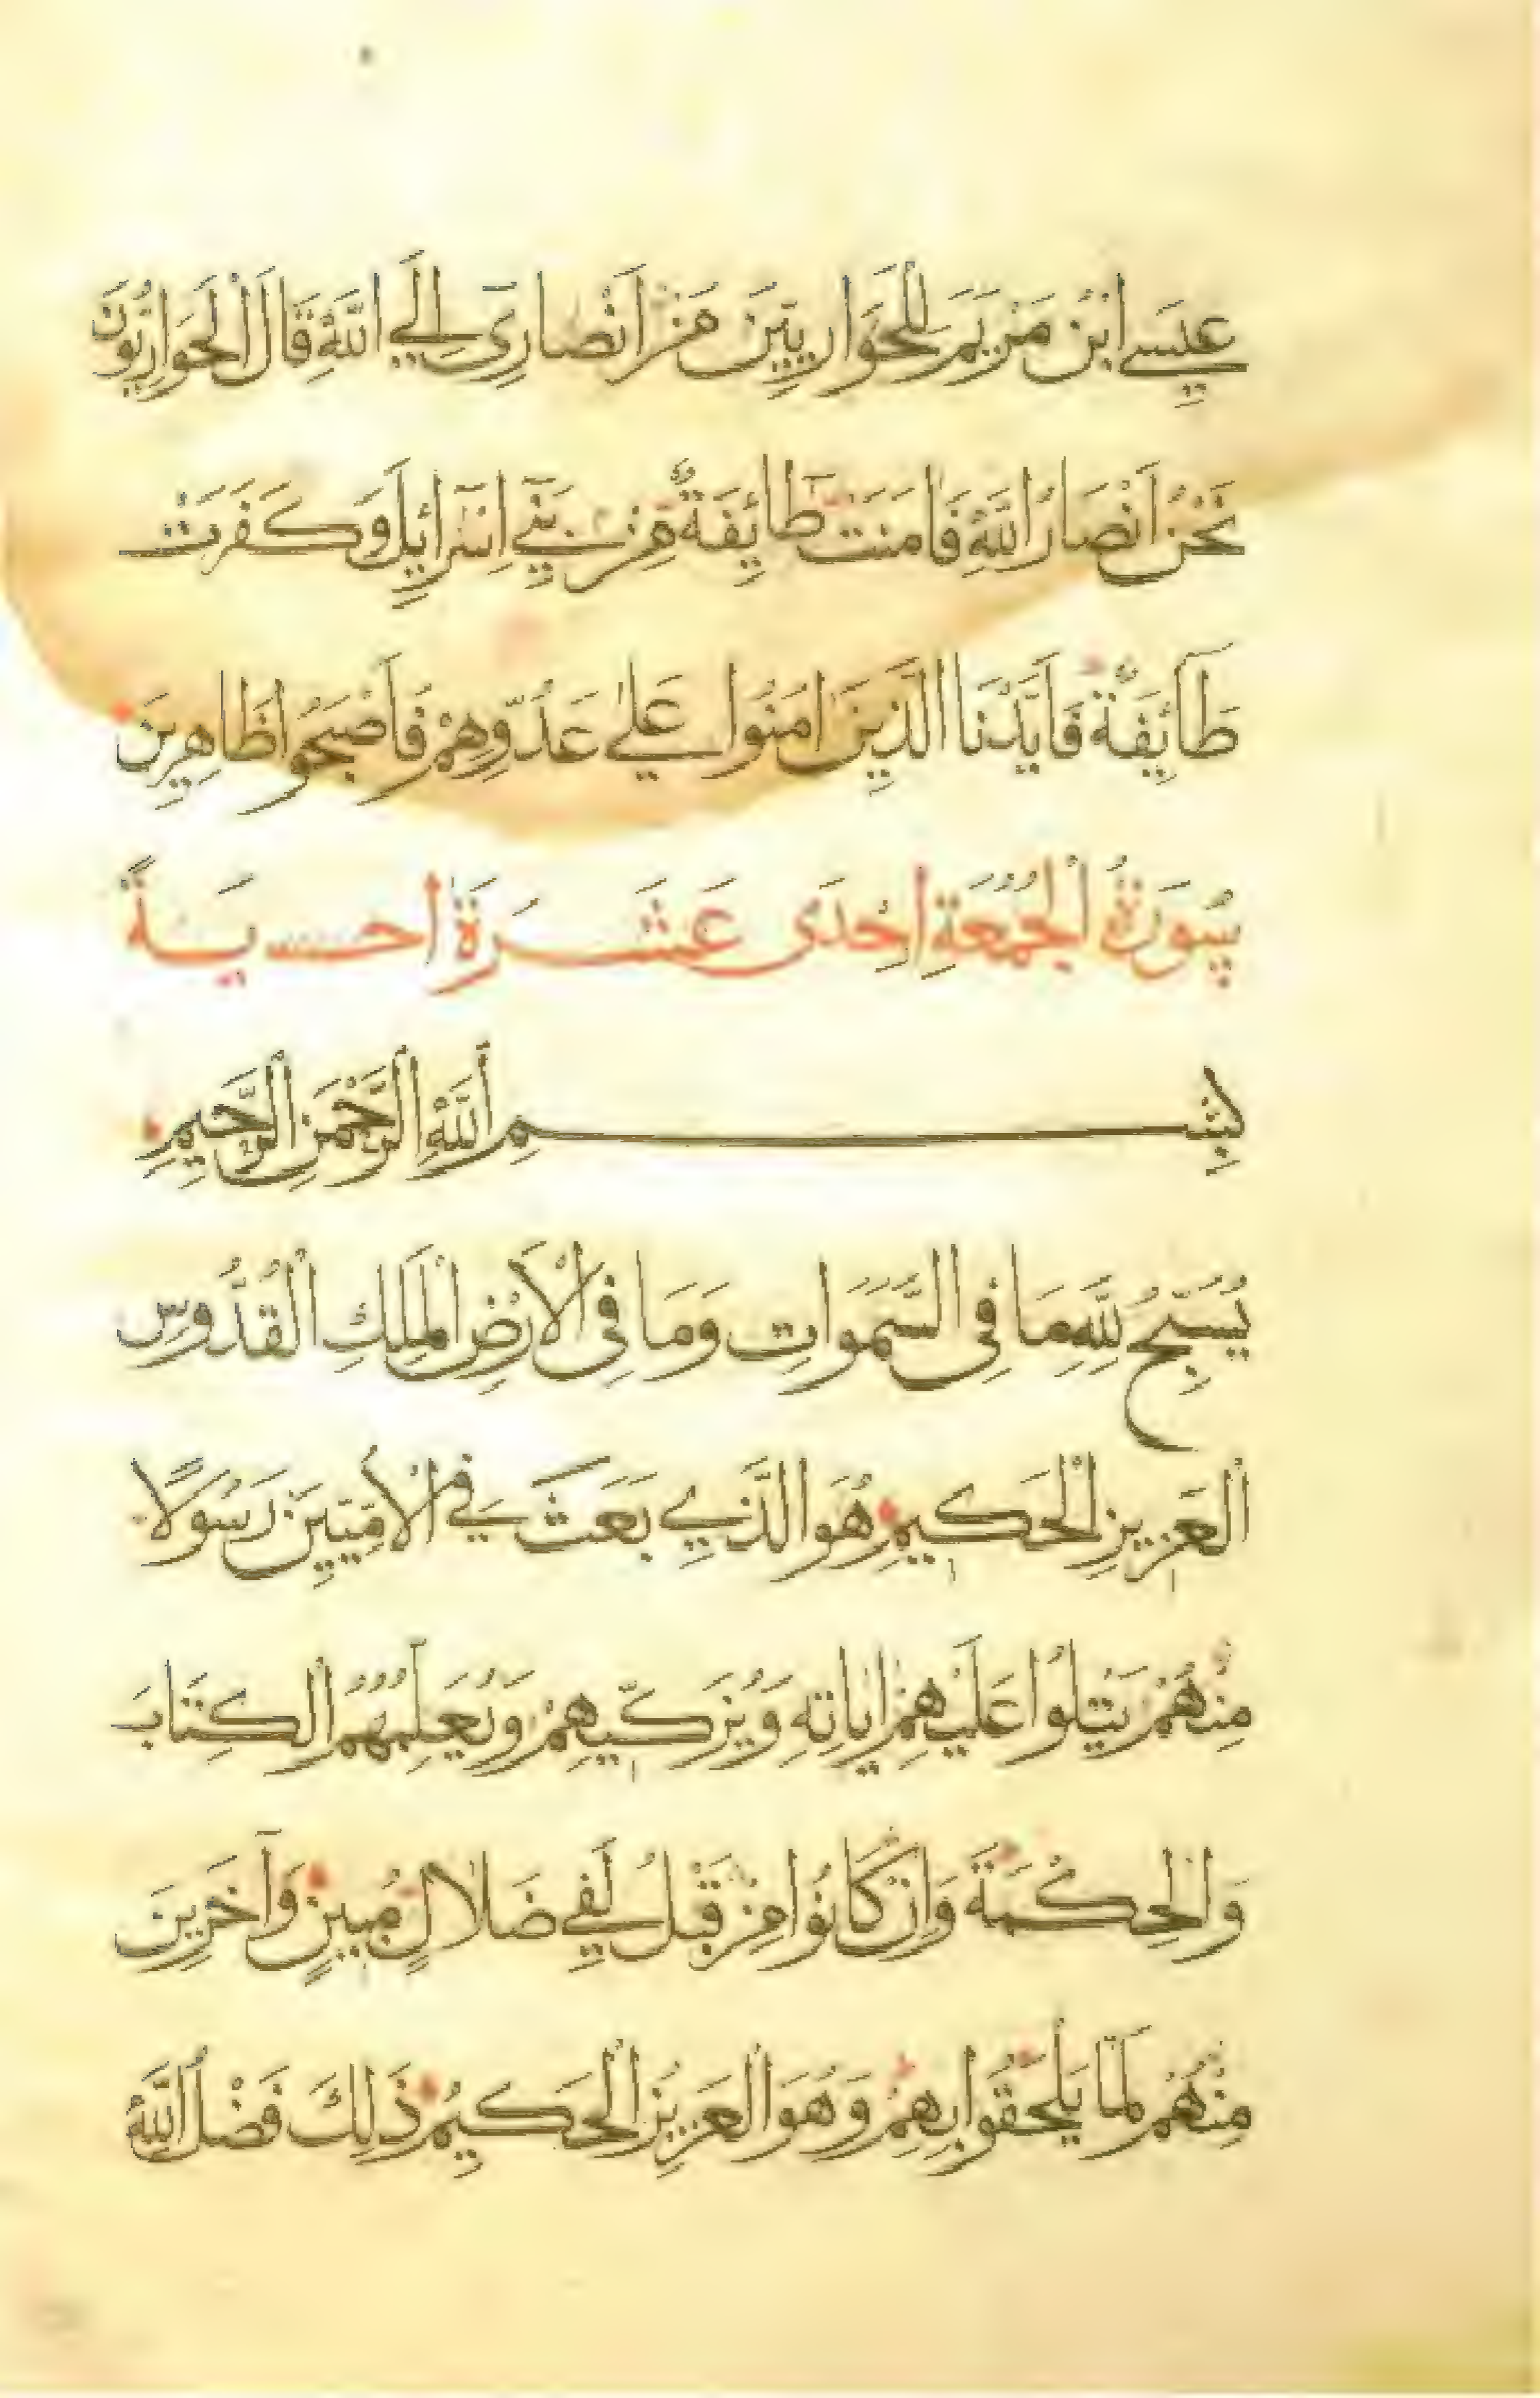 عِيسَى ابْنُ مَرْيَمَ لِلْحَوَارِيِّينَ مَنْ اَنْصَارِي اِلَى اللَّهِ قَالَ الْحَوَارِيُّونَ
نَحْنُ اَنْصَارُ اللَّهِ فَاٰمَنَتْ طَائِفَةٌ مِنْ بَنِي اِسْرَائِيلَ وَكَفَرَتْ
طَائِفَةٌ فَاَيَّدْنَا الَّذِينَ اٰمَنُوا عَلٰى عَدُوِّهِمْ فَاَصْبَحُوا ظَاهِرِينَ
سُورَةُ الْجُمُعَةِ اِحْدَى عَشَرَةَ
بِسْمِ اللَّهِ الرَّحْمٰنِ الرَّحِيمِ
يُسَبِّحُ لِلَّهِ مَا فِي السَّمٰوَاتِ وَمَا فِي الْاَرْضِ الْمَلِكِ الْقُدُّوسِ
الْعَزِيزِ الْحَكِيمِ هُوَ الَّذِي بَعَثَ فِي الْاُمِّيِّينَ رَسُولًا
مِنْهُمْ يَتْلُوا عَلَيْهِمْ اٰيَاتِهِ وَيُزَكِّيهِمْ وَيُعَلِّمُهُمُ الْكِتَابَ
وَالْحِكْمَةَ وَاِنْ كَانُوا مِنْ قَبْلُ لَفِي ضَلَالٍ مُبِينٍ وَاٰخَرِينَ
مِنْهُمْ لَمَّا يَلْحَقُوا بِهِمْ وَهُوَ الْعَزِيزُ الْحَكِيمُ ذٰلِكَ فَضْلُ اللَّهِ